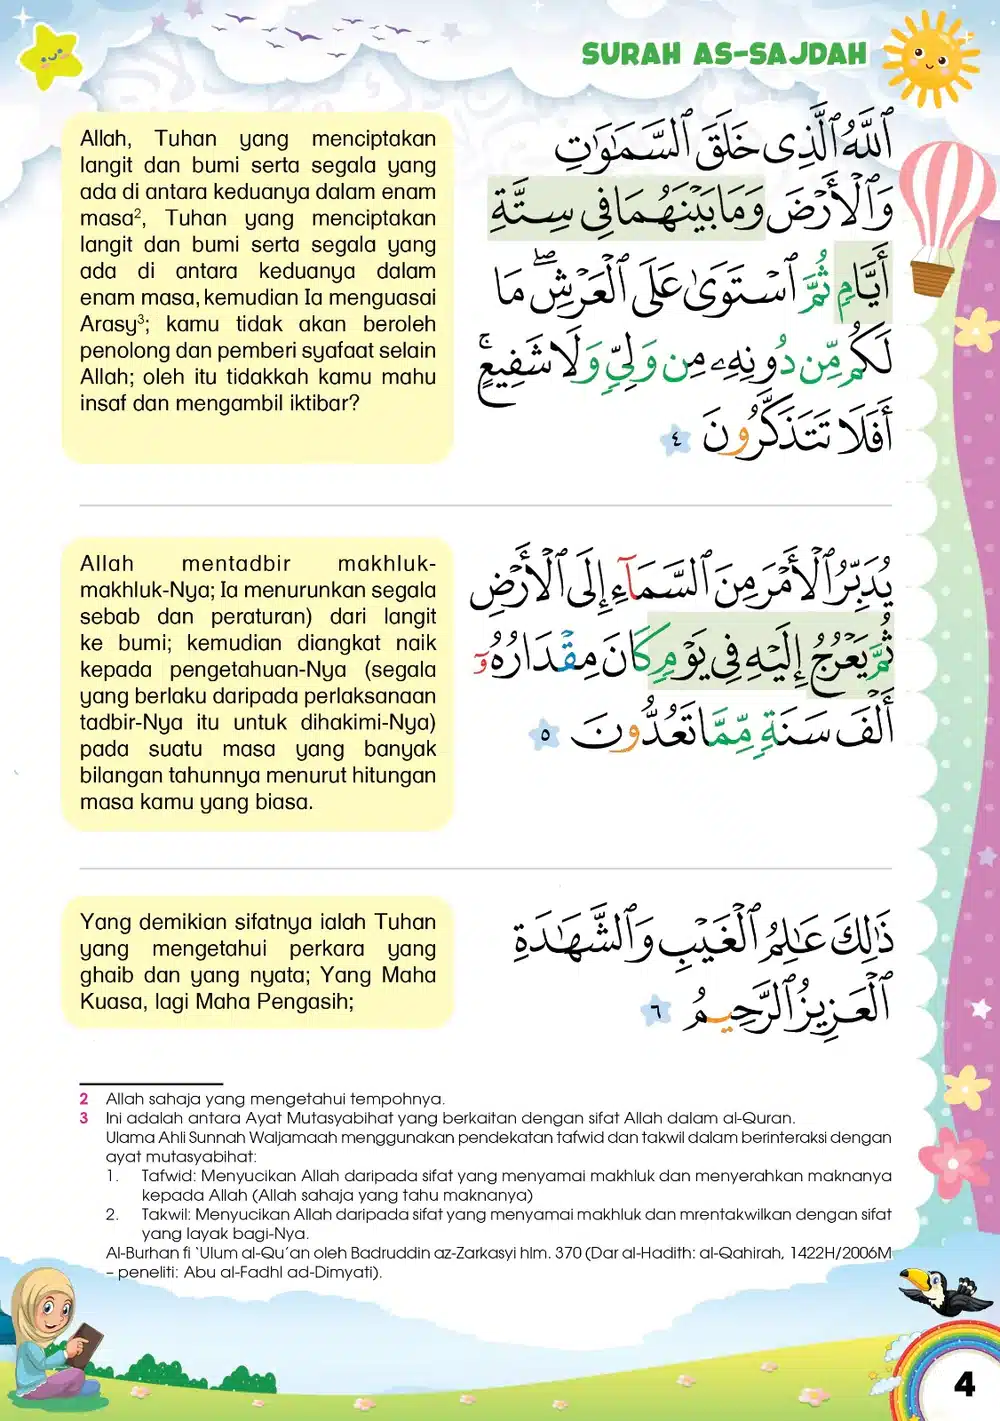 SURAH AS-SAJDAH
ٱللَّهُ ٱلَّذِى خَلَقَ ٱلسَّمَـٰوَٰتِ
وَٱلْأَرْضَ وَمَا بَيْنَهُمَا فِى سِتَّةِ
أَيَّامٍ ثُمَّ ٱسْتَوَىٰ عَلَى ٱلْعَرْشِ ۖ مَا
لَكُم مِّن دُونِهِۦ مِن وَلِىٍّ وَلَا شَفِيعٍ ۚ
أَفَلَا تَتَذَكَّرُونَ ٤
Allah, Tuhan yang menciptakan
langit dan bumi serta segala yang
ada di antara keduanya dalam enam
masa², Tuhan yang menciptakan
langit dan bumi serta segala yang
ada di antara keduanya dalam
enam masa, kemudian Ia menguasai
Arasy³; kamu tidak akan beroleh
penolong dan pemberi syafaat selain
Allah; oleh itu tidakkah kamu mahu
insaf dan mengambil iktibar?
يُدَبِّرُ ٱلْأَمْرَ مِنَ ٱلسَّمَآءِ إِلَى ٱلْأَرْضِ
ثُمَّ يَعْرُجُ إِلَيْهِ فِى يَوْمٍ كَانَ مِقْدَارُهُۥٓ
أَلْفَ سَنَةٍ مِّمَّا تَعُدُّونَ ٥
Allah mentadbir makhluk-
makhluk-Nya; Ia menurunkan segala
sebab dan peraturan) dari langit
ke bumi; kemudian diangkat naik
kepada pengetahuan-Nya (segala
yang berlaku daripada perlaksanaan
tadbir-Nya itu untuk dihakimi-Nya)
pada suatu masa yang banyak
bilangan tahunnya menurut hitungan
masa kamu yang biasa.
ذَٰلِكَ عَـٰلِمُ ٱلْغَيْبِ وَٱلشَّهَـٰدَةِ
ٱلْعَزِيزُ ٱلرَّحِيمُ ٦
Yang demikian sifatnya ialah Tuhan
yang mengetahui perkara yang
ghaib dan yang nyata; Yang Maha
Kuasa, lagi Maha Pengasih;
2 Allah sahaja yang mengetahui tempohnya.
3 Ini adalah antara Ayat Mutasyabihat yang berkaitan dengan sifat Allah dalam al-Quran.
Ulama Ahli Sunnah Waljamaah menggunakan pendekatan tafwid dan takwil dalam berinteraksi dengan
ayat mutasyabihat:
1. Tafwid: Menyucikan Allah daripada sifat yang menyamai makhluk dan menyerahkan maknanya
kepada Allah (Allah sahaja yang tahu maknanya)
2. Takwil: Menyucikan Allah daripada sifat yang menyamai makhluk dan mrentakwilkan dengan sifat
yang layak bagi-Nya.
Al-Burhan fi ‘Ulum al-Qu’an oleh Badruddin az-Zarkasyi hlm. 370 (Dar al-Hadith: al-Qahirah, 1422H/2006M
– peneliti: Abu al-Fadhl ad-Dimyati).
4